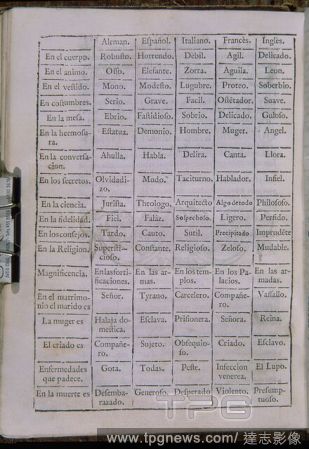 Aleman. Español. Italiano. Francès. Inglès.
En el cuerpo. Robusto. Horrendo. Dèbil. Agil. Delicado.
En el animo. Osso. Elefante. Zorra. Aguila. Leon.
En el vestido. Mono. Modesto. Lugubre. Proteo. Soberbio.
En costumbres. Serio. Grave. Facil. Ostètador. Suave.
En la mesa. Ebrio. Fastidioso. Sobrio. Delicado. Guloso.
En la hermosu- Estatua. Demonio. Hombre. Muger. Angel.
ra.
En la conversa- Ahulla. Habla. Delira. Canta. Llora.
cion.
En los secretos. Olvidadi- Mudo. Taciturno. Hablador. Infiel.
zo.
En la ciencia. Jurista. Theologo. Arquitecto Algo de todo Philosofo.
En la fidelidad. Fiel. Falàz. Sospechoso. Ligero. Perfido.
En los consejos. Tardo. Cauto. Sutil. Precipitado Imprudète
En la Religion. Supersti- Constante. Religioso. Zeloso. Mudable.
cioso.
Magnificencia. En las forti- En las ar- En los tem- En los Pa- En las ar-
ficaciones. mas. plos. lacios. madas.
En el matrimo- Señor. Tyrano. Carcelero. Compañe- Vassallo.
nio el marido es ro.
La muger es Halaja do- Esclava. Prisionera. Señora. Reina.
mestica.
El criado es Compañe- Sujeto. Obsequio- Criado. Esclavo.
ro. so.
Enfermedades Gota. Todas. Peste. Infeccion El Lupo.
que padece. venerea.
En la muerte es Desemba- Generoso. Desperado Violento. Presump-
razado. tuoso.
TPG
www.tpgnews.com/ 達志影像